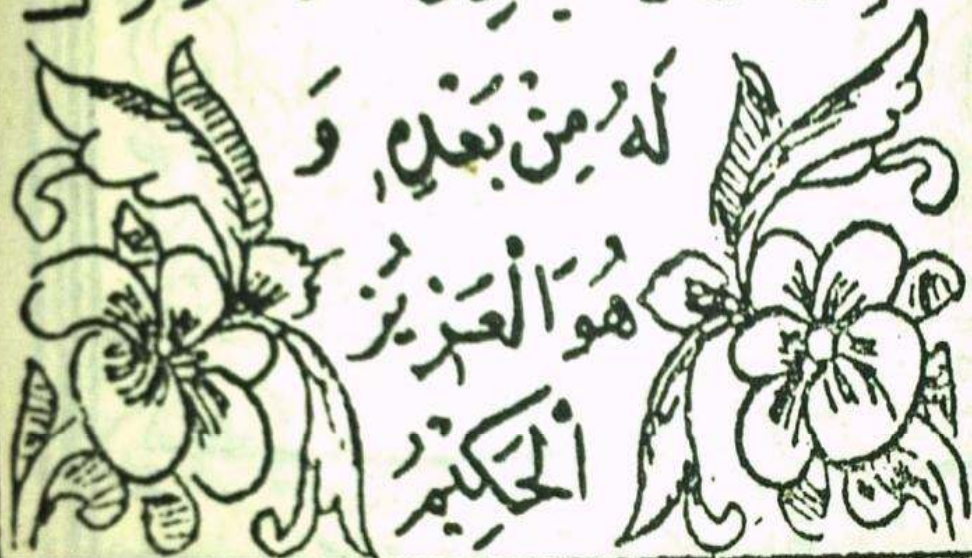 لَهُ مِنْ بَعْدِهِ وَ
هُوَ الْعَزِيزُ
الْحَكِيمُ